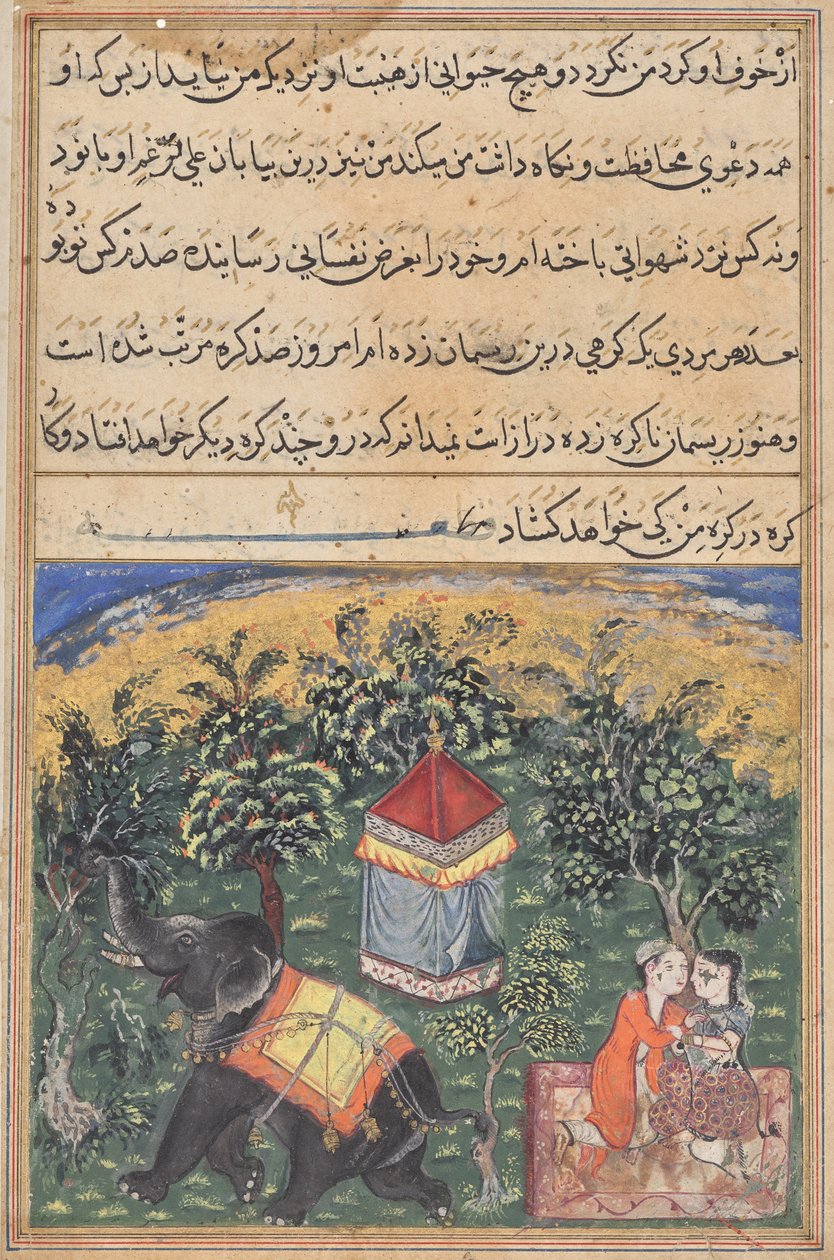 از خوف او کرد من نکردد و هیچ حیوانی از هیبت او نزدیک من نیاید از بس که او
همه دعوی محافظت و نکاه داشت من میکند من نیز درین بیابان علی الرغم او با نود
و نه کس نرد شهواتی باخته ام و خود را بغرض نفسانی رسانیده صدم کس تو بودهٔ
بعدد هر مردی یک کرهی درین ریسمان زده ام امروز صد کره مرتب شده است
و هنوز ریسمان ناکره زده دراز است نمیدانم که درو چند کره دیکر خواهد افتاد و کار
کره در کره من کی خواهد کشاد